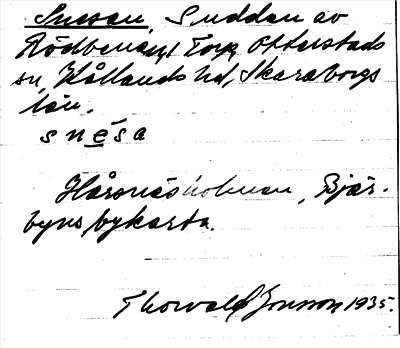 Snesan, Sudden av
Rödbenan, Torp, Otterstads
sn, Kållands hd, Skaraborgs
län.
s n e s a
Hårsnäsholmen, Bjär-
byns bykarta.
Thorvald Jonsson 1935.